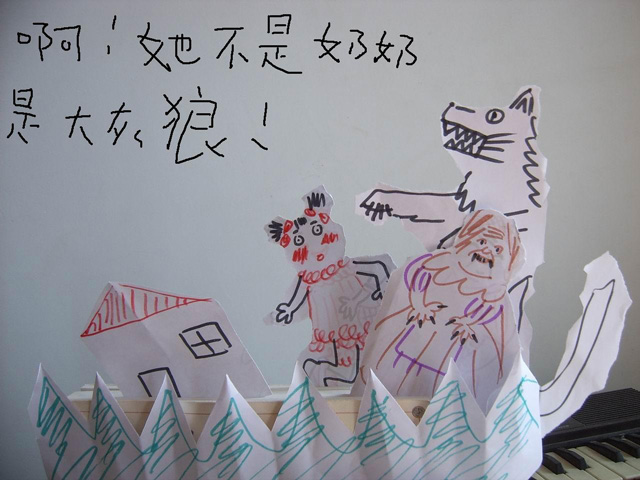 啊！她不是奶奶
是大灰狼！